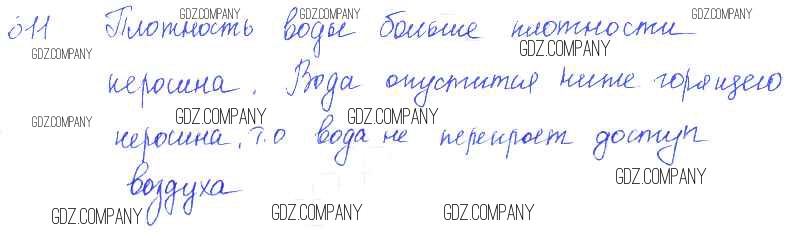 611 Плотность воды больше плотности
керосина. Вода опустится ниже горящего
керосина, т.о вода не перекроет доступ
воздуха
GDZ.COMPANY GDZ.COMPANY GDZ.COMPANY
GDZ.COMPANY GDZ.COMPANY
GDZ.COMPANY GDZ.COMPANY GDZ.COMPANY
GDZ.COMPANY
GDZ.COMPANY GDZ.COMPANY GDZ.COMPANY